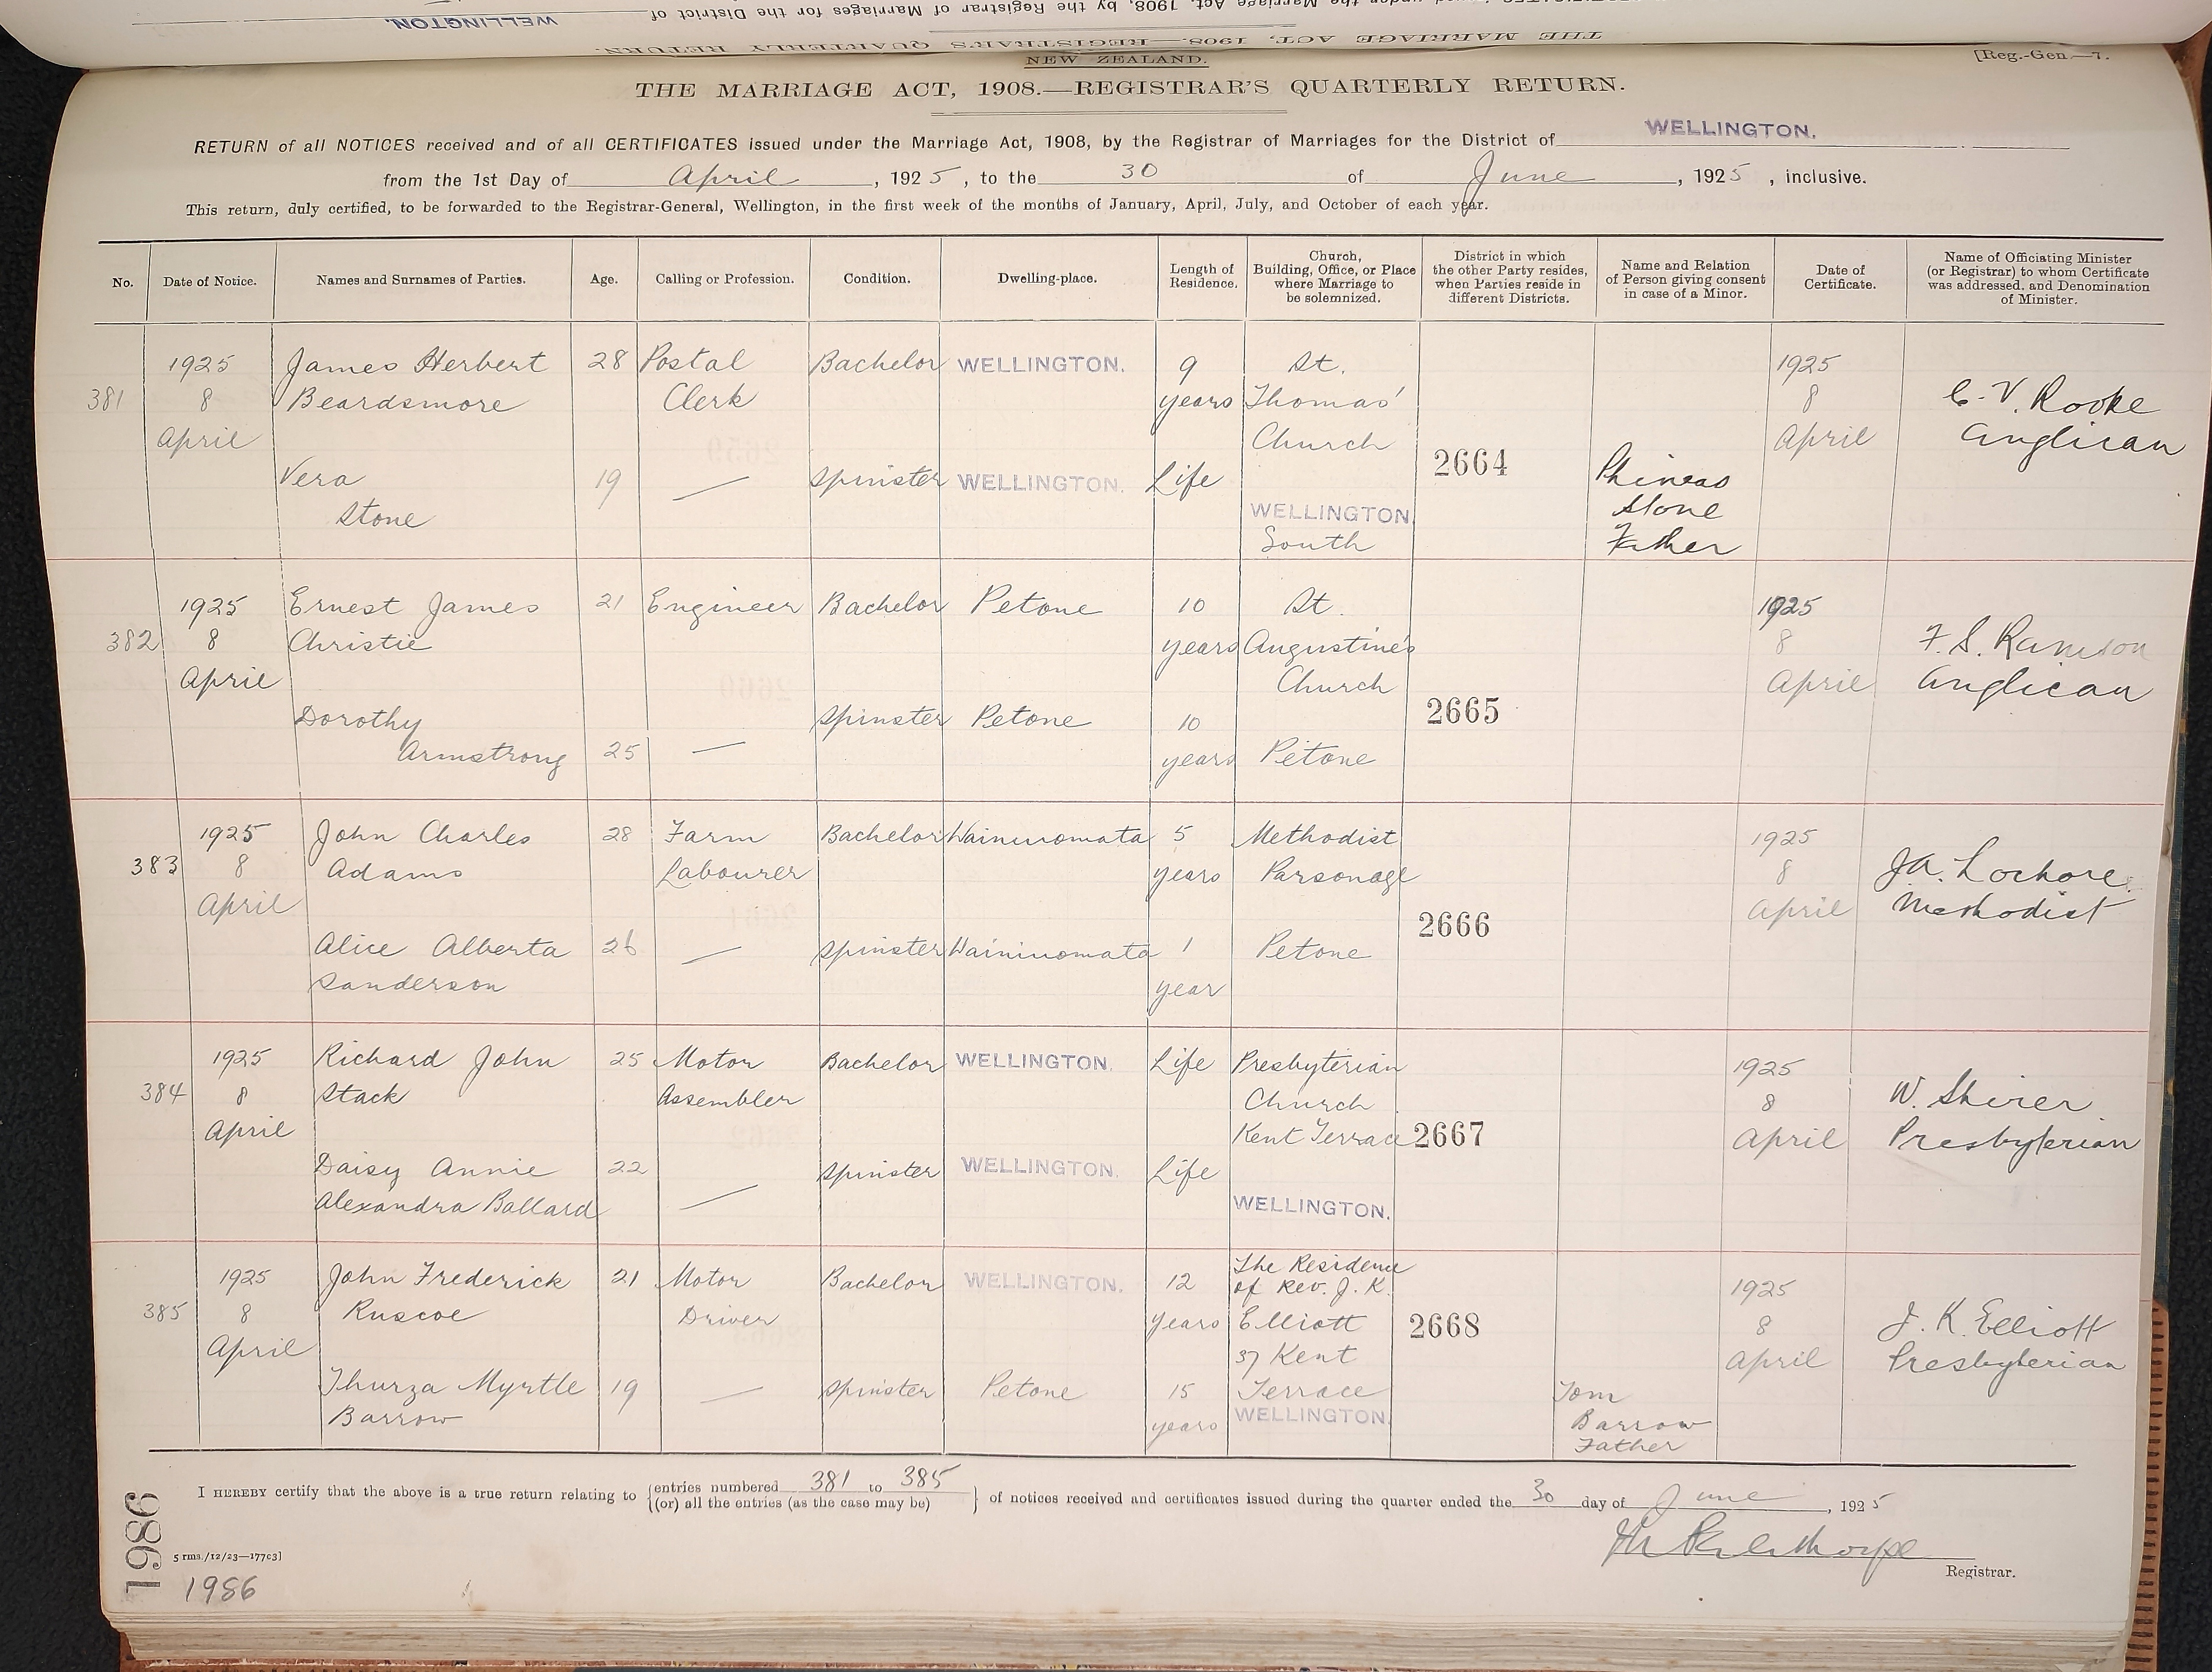 WELLINGTON.
NEW ZEALAND.
[Reg.-Gen.—7.
THE MARRIAGE ACT, 1908.—REGISTRAR'S QUARTERLY RETURN.
RETURN of all NOTICES received and of all CERTIFICATES issued under the Marriage Act, 1908, by the Registrar of Marriages for the District of WELLINGTON.
from the 1st Day of April, 1925, to the 30 of June, 1925, inclusive.
This return, duly certified, to be forwarded to the Registrar-General, Wellington, in the first week of the months of January, April, July, and October of each year.
No.
Date of Notice.
Names and Surnames of Parties.
Age.
Calling or Profession.
Condition.
Dwelling-place.
Length of
Residence.
Church,
Building, Office, or Place
where Marriage to
be solemnized.
District in which
the other Party resides,
when Parties reside in
different Districts.
Name and Relation
of Person giving consent
in case of a Minor.
Date of
Certificate.
Name of Officiating Minister
(or Registrar) to whom Certificate
was addressed, and Denomination
of Minister.
381
1925
8
April
James Herbert
Beardsmore
28
Postal
Clerk
Bachelor
WELLINGTON.
9
years
Vera
Stone
19
—
Spinster
WELLINGTON.
Life
St.
Thomas'
Church
WELLINGTON.
South
2664
Phineas
Stone
Father
1925
8
April
C. V. Rooke
Anglican
382
1925
8
April
Ernest James
Christie
21
Engineer
Bachelor
Petone
10
years
Dorothy
Armstrong
25
—
Spinster
Petone
10
years
St.
Augustine's
Church
Petone
2665
1925
8
April
F. S. Ramson
Anglican
383
1925
8
April
John Charles
Adams
28
Farm
Labourer
Bachelor
Wainuiomata
5
years
Alice Alberta
Sanderson
26
—
Spinster
Wainuiomata
1
year
Methodist
Parsonage
Petone
2666
1925
8
April
J. A. Lochore.
Methodist
384
1925
8
April
Richard John
Stack
25
Motor
Assembler
Bachelor
WELLINGTON.
Life
Daisy Annie
Alexandra Ballard
22
—
Spinster
WELLINGTON.
Life
Presbyterian
Church
Kent Terrace
WELLINGTON.
2667
1925
8
April
W. Shirer
Presbyterian
385
1925
8
April
John Frederick
Ruscoe
21
Motor
Driver
Bachelor
WELLINGTON.
12
years
Thurza Myrtle
Barrow
19
—
Spinster
Petone
15
years
The Residence
of Rev. J. K.
Elliott
37 Kent
Terrace
WELLINGTON.
2668
Tom
Barrow
Father
1925
8
April
J. K. Elliott
Presbyterian
I HEREBY certify that the above is a true return relating to {entries numbered 381 to 385
{(or) all the entries (as the case may be)} of notices received and certificates issued during the quarter ended the 30 day of June, 1925
Registrar.
5 rms./12/23—17703]
1986
1986